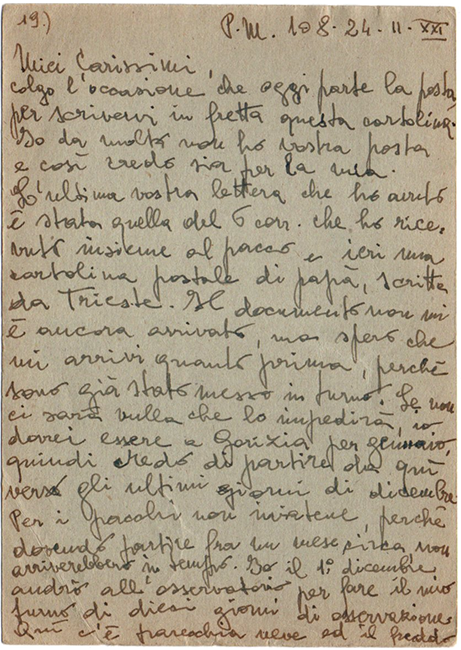 19.)
P.M. 108 - 24 - 11 - XXI
Miei Carissimi,
colgo l'occasione, che oggi parte la posta
per scrivervi in fretta questa cartolina.
Io da molto non ho vostra posta
e così credo sia per la mia.
L'ultima vostra lettera che ho avuto
è stata quella del 6 corr. che ho rice-
vuto insieme al pacco e ieri una
cartolina postale di papà, scritta
da Trieste. Il documento non mi
è ancora arrivato, ma spero che
mi arrivi quanto prima, perchè
sono già stato messo in turno. Se non
ci sarà nulla che lo impedirà, io
dovrei essere a Gorizia per gennaio,
quindi credo di partire da quì
verso gli ultimi giorni di dicembre
Per i pacchi non inviatene, perchè
dovendo partire fra un mese circa non
arriverebbero in tempo. Io il 1° dicembre
andrò all'osservatorio per fare il mio
turno di dieci giorni di osservazione.
Quì c'è parecchia neve ed il freddo